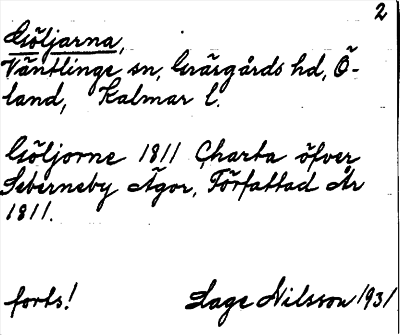 2
Göljarna,
Väntlinge sn, Gräsgårds hd, Ö-
land, Kalmar l.
Göljorne 1811 Charta öfver
Seberneby Ägor, Författad År
1811.
forts! Sage Nilsson 1931